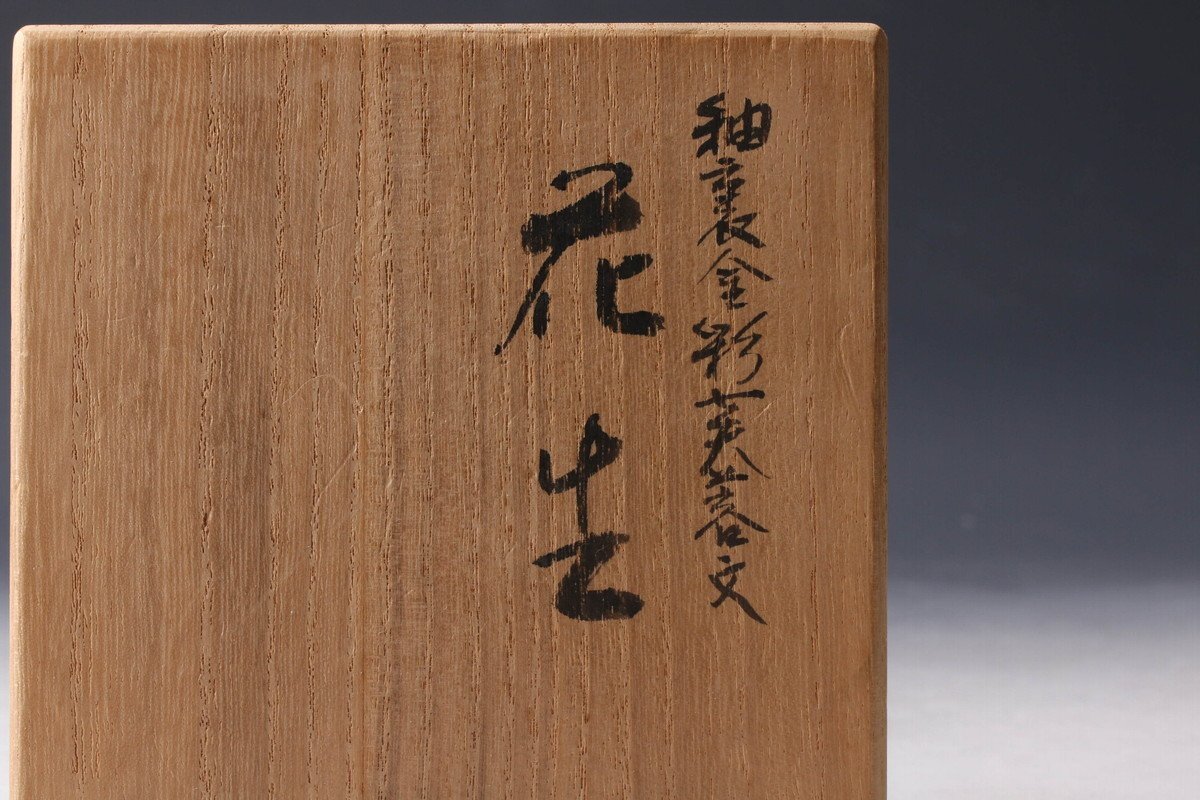 釉裏金彩芙蓉文
花生